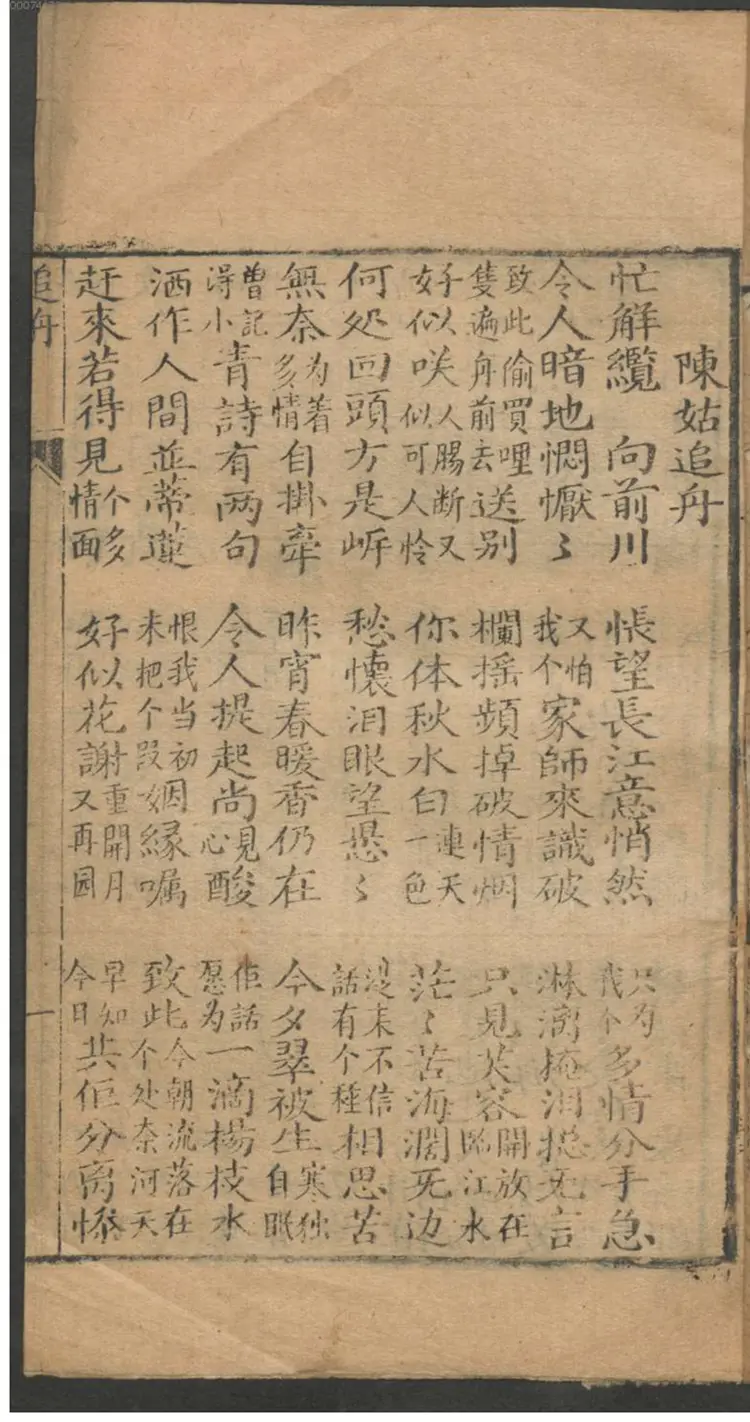 陳姑追舟
忙觧纜　向前川　悵望長江意悄然　只为我个多情分手急
令人暗地悶懨〻　又怕我个家師來識破　淋漓掩泪捴无言
致此偷買哩隻遍舟前去送别　欄揺頻掉破情烟　只見芙容開放在臨江水
好似咲人腸断又似可人怜　你体秋水白連天一色　茫〻苦海濶无边
何処回頭方是岍　愁懷泪眼望懸〻　未不信話有个種相思苦
無奈为着多情自掛牽　昨宵春暖香仍在　今夕翠被生寒独自眠
曾記得小青詩有两句　令人提起尚見心酸　佢話愿为一滴楊枝水
洒作人間並蒂蓮　恨我当初未把个段姻緣嘱　致此今朝流落在个处奈河天
赶來若得見个多情面　好似花謝重開月又再圆　早知今日共佢分离慘
追舟
一